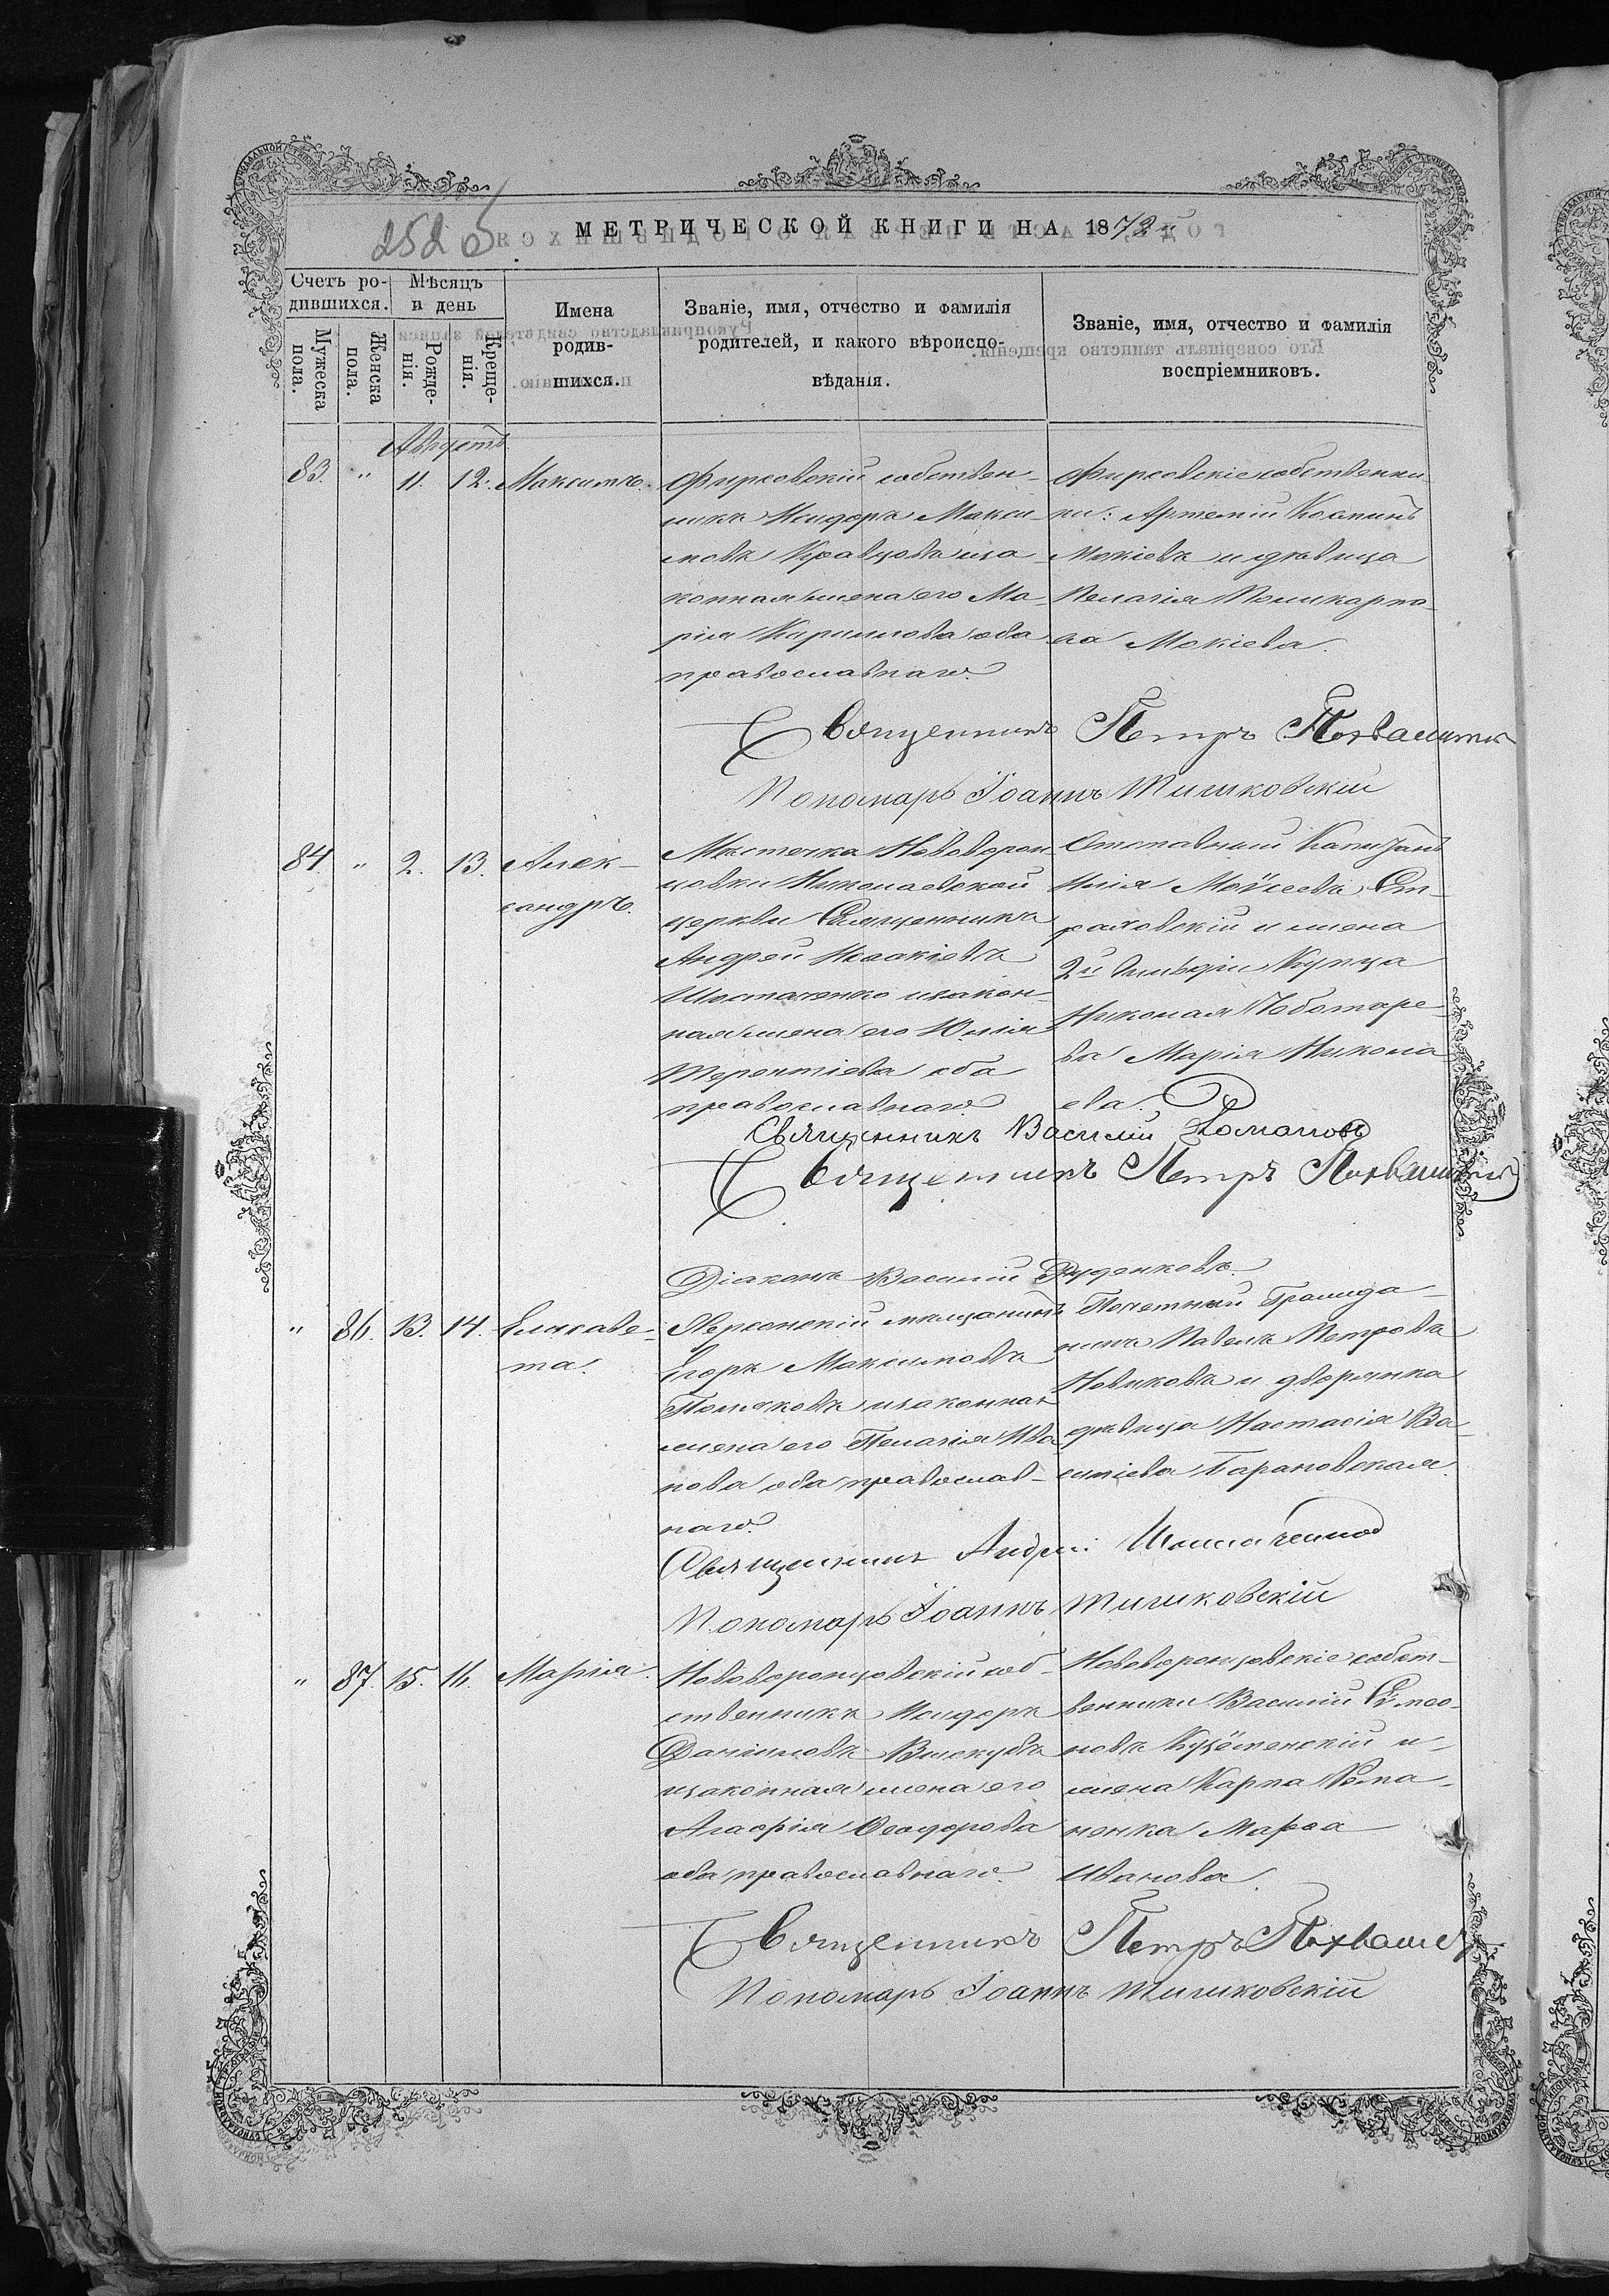 252 об
МЕТРИЧЕСКОЙ КНИГИ НА 1872
Счетъ ро-
дившихся.
Мѣсяцъ
и день
Мужеска
пола.
Женска
пола.
Рожде-
нія.
Креще-
нія.
Имена
родив-
шихся.
Званіе, имя, отчество и фамилія
родителей, и какого вѣроиспо-
вѣданія.
Званіе, имя, отчество и фамилія
воспріемниковъ.
Августъ
83. " 11. 12. Максимъ.
Фирсовскій собствен-
никъ Исидоръ Макси-
мовъ Кравцовъ и за
конная жена его Ма-
рія Кириллова оба
православнаго.
Фирсовскіе собственни
ки: Артемій
Мокіевъ и дѣвица
Пелагія Поликарпо-
ва Мокіева.
Священникъ Петръ
Пономарь Іоаннъ Тишковскій
84 " 2. 13. Алек-
сандръ.
Мѣстечка Нововорон-
цовки Николаевской
церкви Священникъ
Андрей Исаакіевъ
Шостаченко и закон-
ная жена его Юлія
Терентіева оба
православнаго
Отставный Капитанъ
Илія Моѵсеевъ Ст-
раховскій и жена
2й Гильдіи Купца
Николая Чоботаре-
ва Марія Никола
ева.
Священникъ Василій Романовъ
Священникъ Петръ
Діаконъ Василій Руденковъ
" 86. 13. 14. Елисаве-
та.
Херсонскій мѣщанинъ
Егоръ Максимовъ
Поляковъ и законная
жена его Пелагія Ива
нова оба православ-
наго.
Почетный Гражда-
нинъ Павелъ Петровъ
Новиковъ и дворянка
дѣвица Настасія Ва-
силіева Барановская.
Священникъ Андрей Шостаченко
Пономарь Іоаннъ Тишковскій
" 87. 15. 16. Марія.
Нововоронцовскій соб-
ственникъ Исидоръ
Даніиловъ
и законная жена его
Агафія Ѳеодорова
оба православнаго.
Нововоронцовскіе собст-
венники Василій Сѵмео-
новъ и
жена Карпа Рома-
ненка Марѳа
Иванова.
Священникъ Петръ
Пономарь Іоаннъ Тишковскій